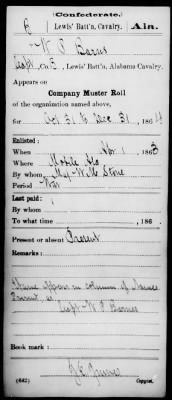 (Confederate.)
B Lewis' Battn, Cavalry. Ala.
W P Barns
Capt, Co. E, Lewis' Batt'n, Alabama Cavalry.
Appears on
Company Muster Roll
of the organization named above,
for Oct 31 to Dec 31, 1864
Enlisted:
When Apr 1, 1863
Where Mobile
By whom Maj. W. M. Stone
Period War
Last paid:
By whom
To what time , 186 .
Present or absent Present
Remarks:
Name appears in column of Names
Present as Capt W P Barnes
Book mark:
(642) Copyist.